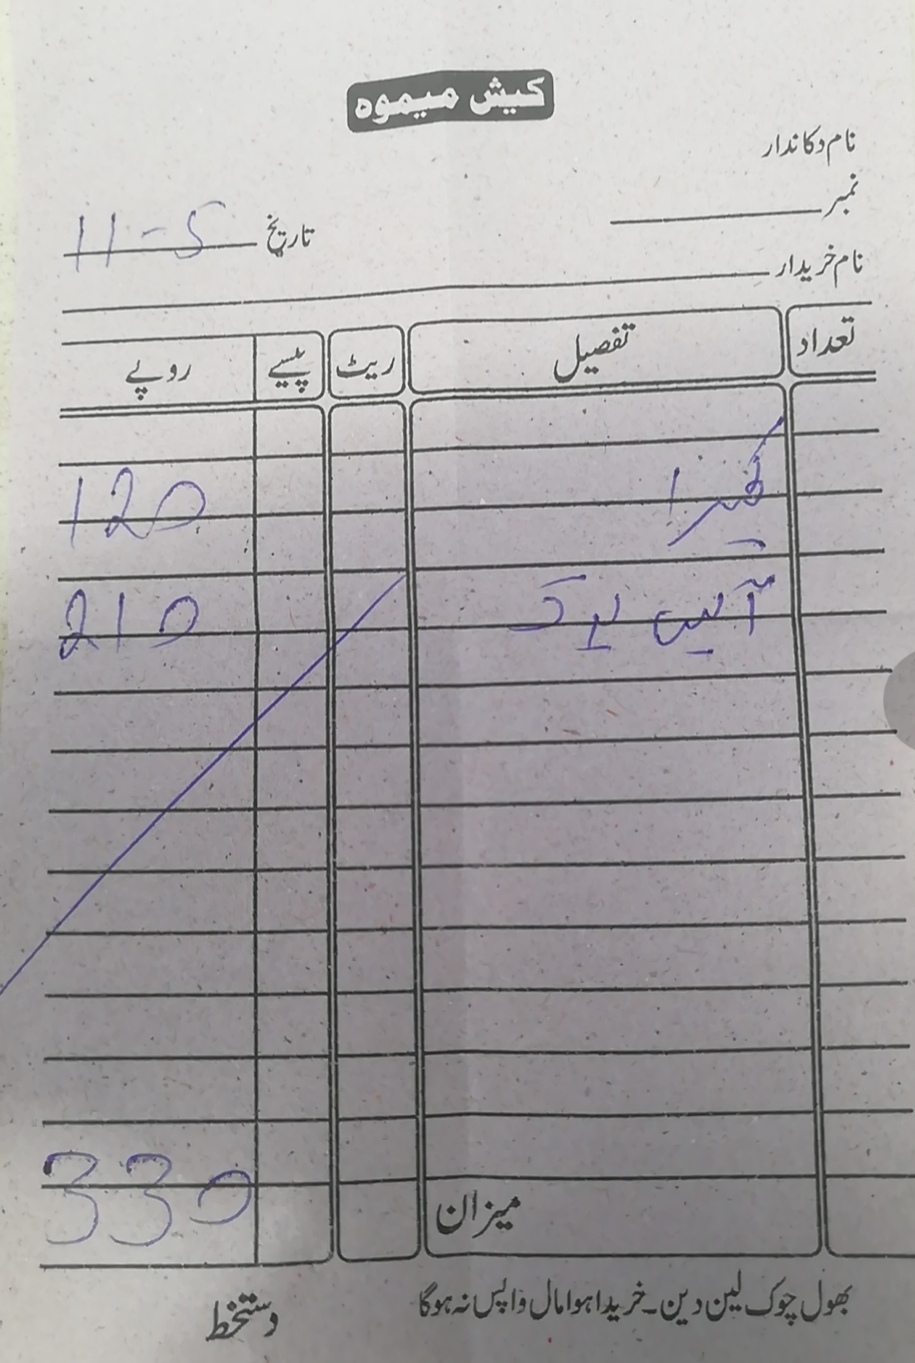 کیش میموہ
نام دکاندار
نمبر
تاریخ 11-5
نام خریدار
تعداد تفصیل ریٹ پیسے روپے
کھیرا 120
آئس برگ 210
میزان 330
بھول چوک لین دین۔ خریدا ہوا مال واپس نہ ہوگا
دستخط